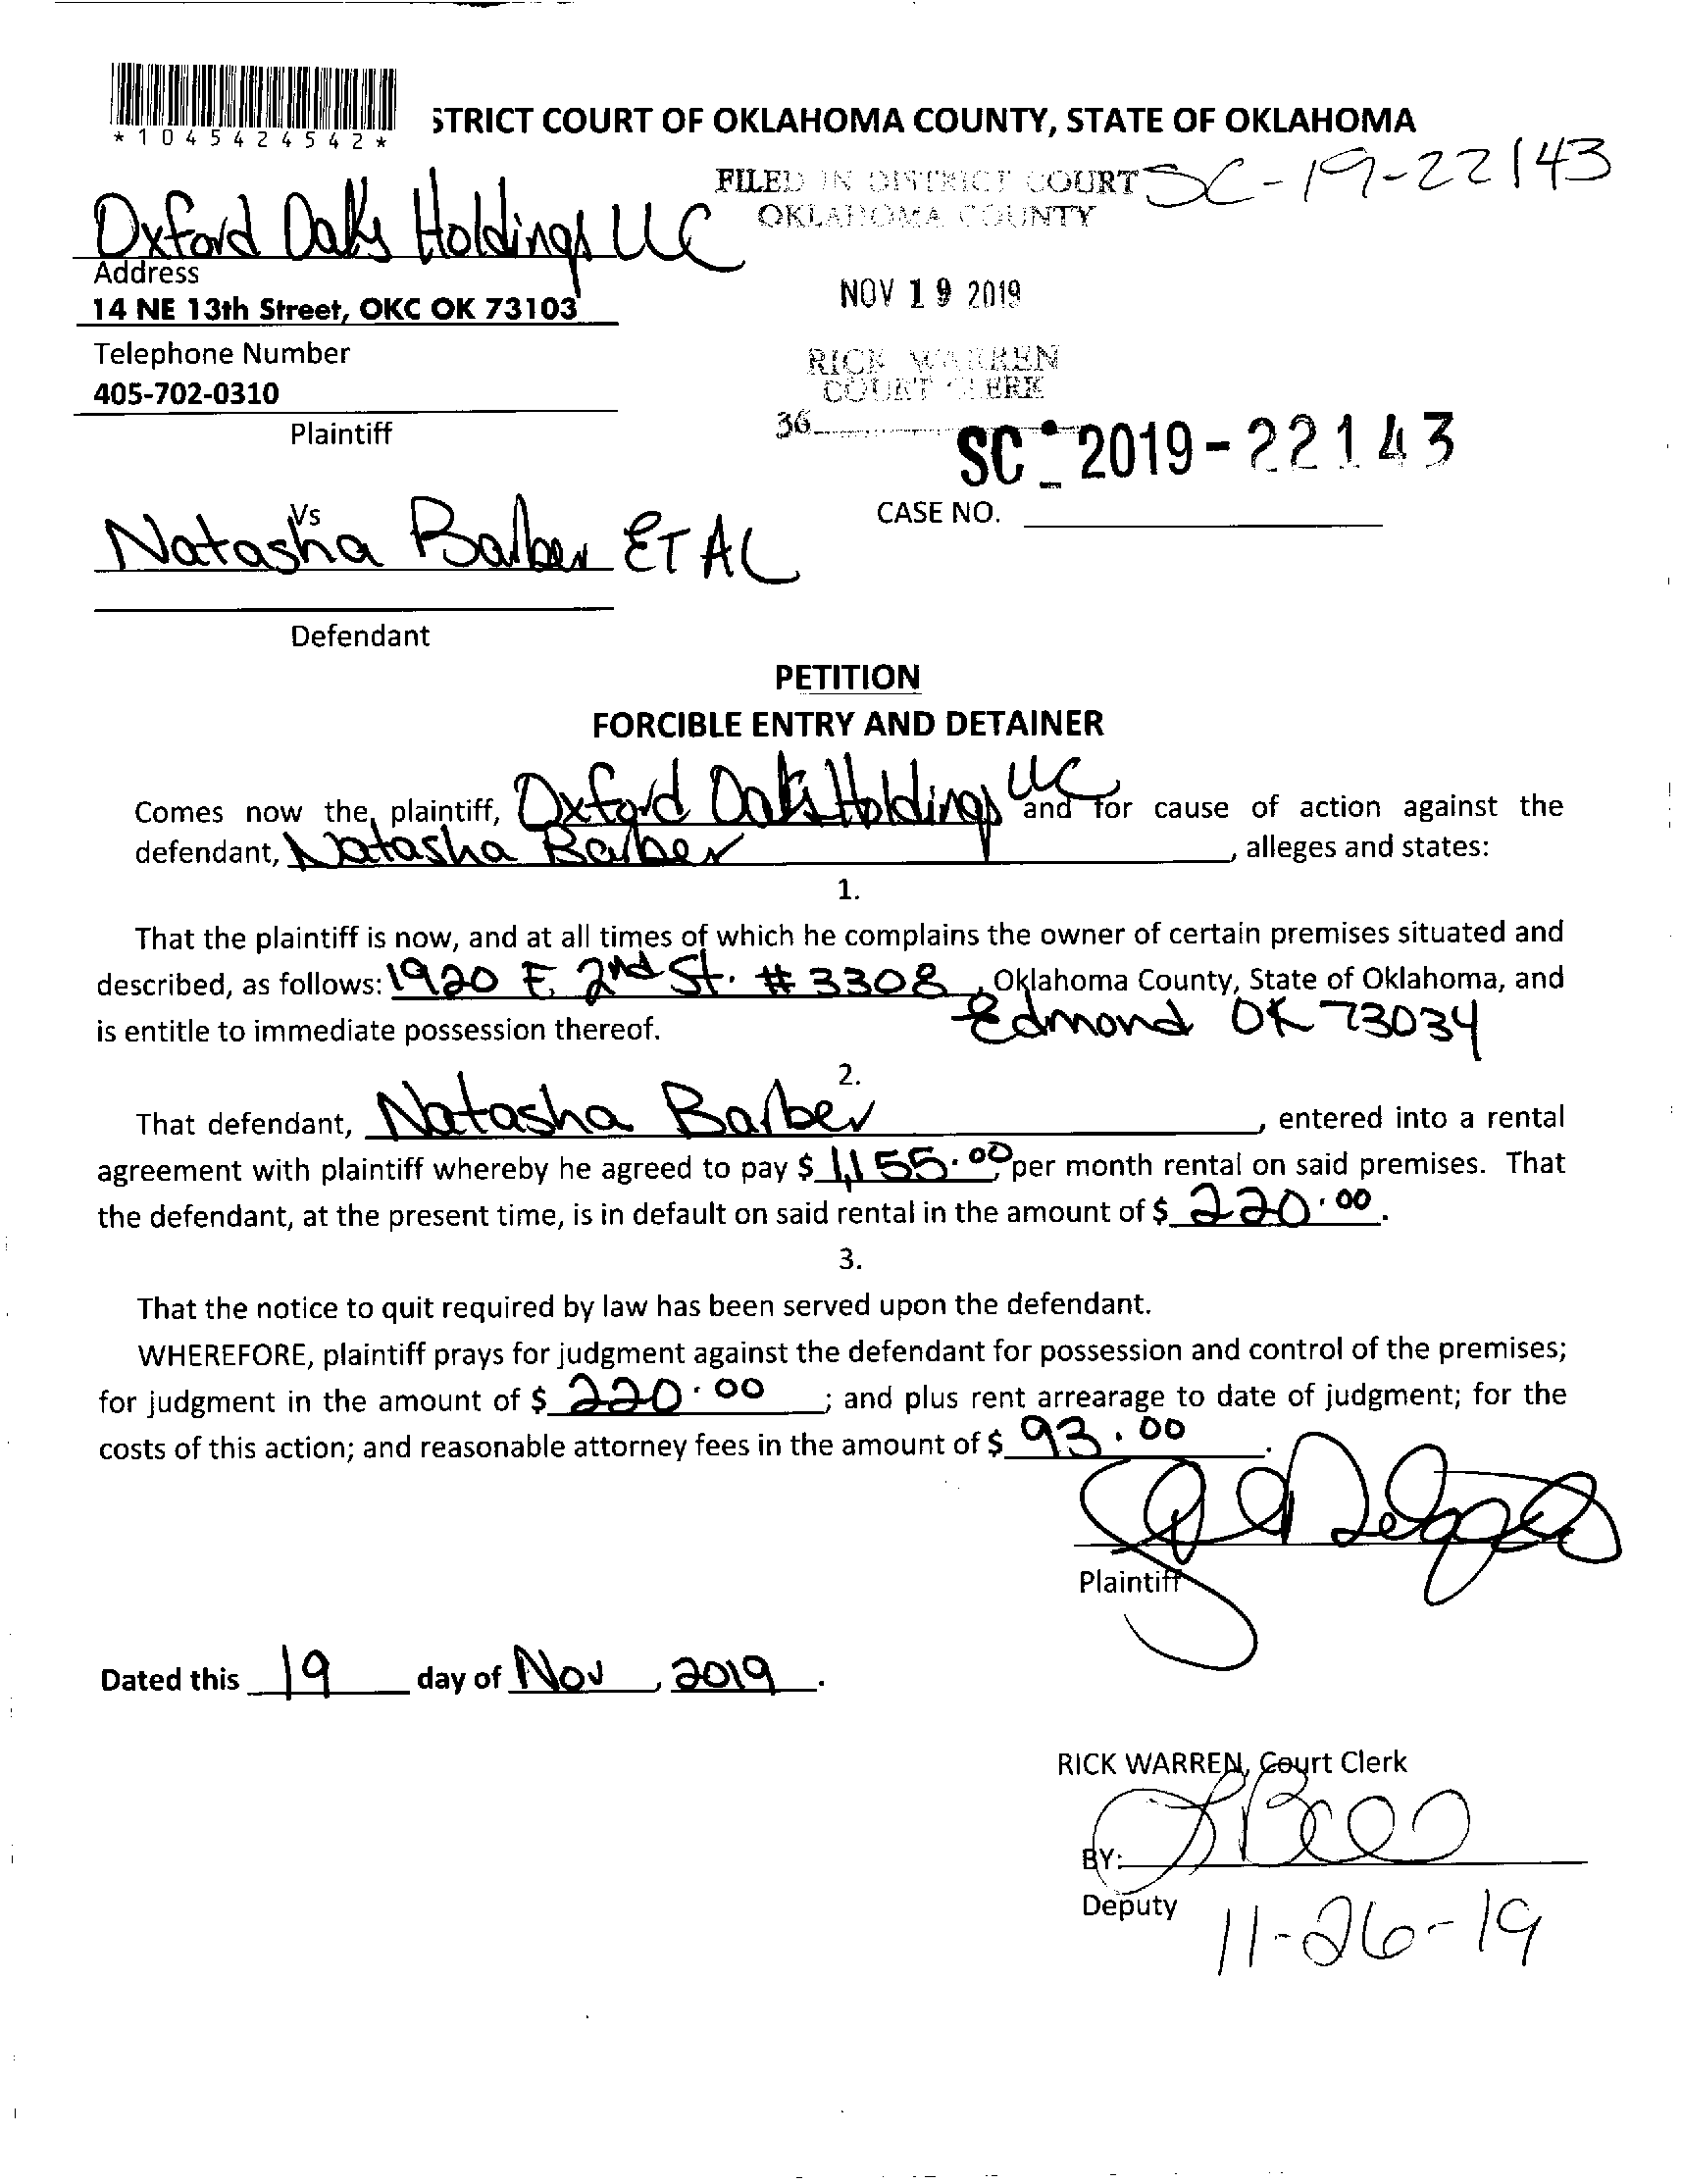 *1045424542*
STRICT COURT OF OKLAHOMA COUNTY, STATE OF OKLAHOMA
FILED IN DISTRICT COURT SC-19-22143
OKLAHOMA COUNTY
Oxford Oaks Holdings LLC
Address
14 NE 13th Street, OKC OK 73103
NOV 19 2019
Telephone Number
RICK WARREN
COURT CLERK
405-702-0310
36
Plaintiff
SC - 2019-22143
Vs
CASE NO.
Natasha Barber ET AL
Defendant
PETITION
FORCIBLE ENTRY AND DETAINER
Comes now the, plaintiff, Oxford Oaks Holdings LLC and for cause of action against the
defendant, Natasha Barber, alleges and states:
1.
That the plaintiff is now, and at all times of which he complains the owner of certain premises situated and
described, as follows: 1920 E 2nd St. #3308, Oklahoma County, State of Oklahoma, and
Edmond OK 73034
is entitle to immediate possession thereof.
2.
That defendant, Natasha Barber, entered into a rental
agreement with plaintiff whereby he agreed to pay $ 1,155.00, per month rental on said premises. That
the defendant, at the present time, is in default on said rental in the amount of $ 220.00.
3.
That the notice to quit required by law has been served upon the defendant.
WHEREFORE, plaintiff prays for judgment against the defendant for possession and control of the premises;
for judgment in the amount of $ 220.00; and plus rent arrearage to date of judgment; for the
costs of this action; and reasonable attorney fees in the amount of $ 93.00.
Plaintiff
Dated this 19 day of Nov, 2019.
RICK WARREN, Court Clerk
BY:
Deputy
11-26-19